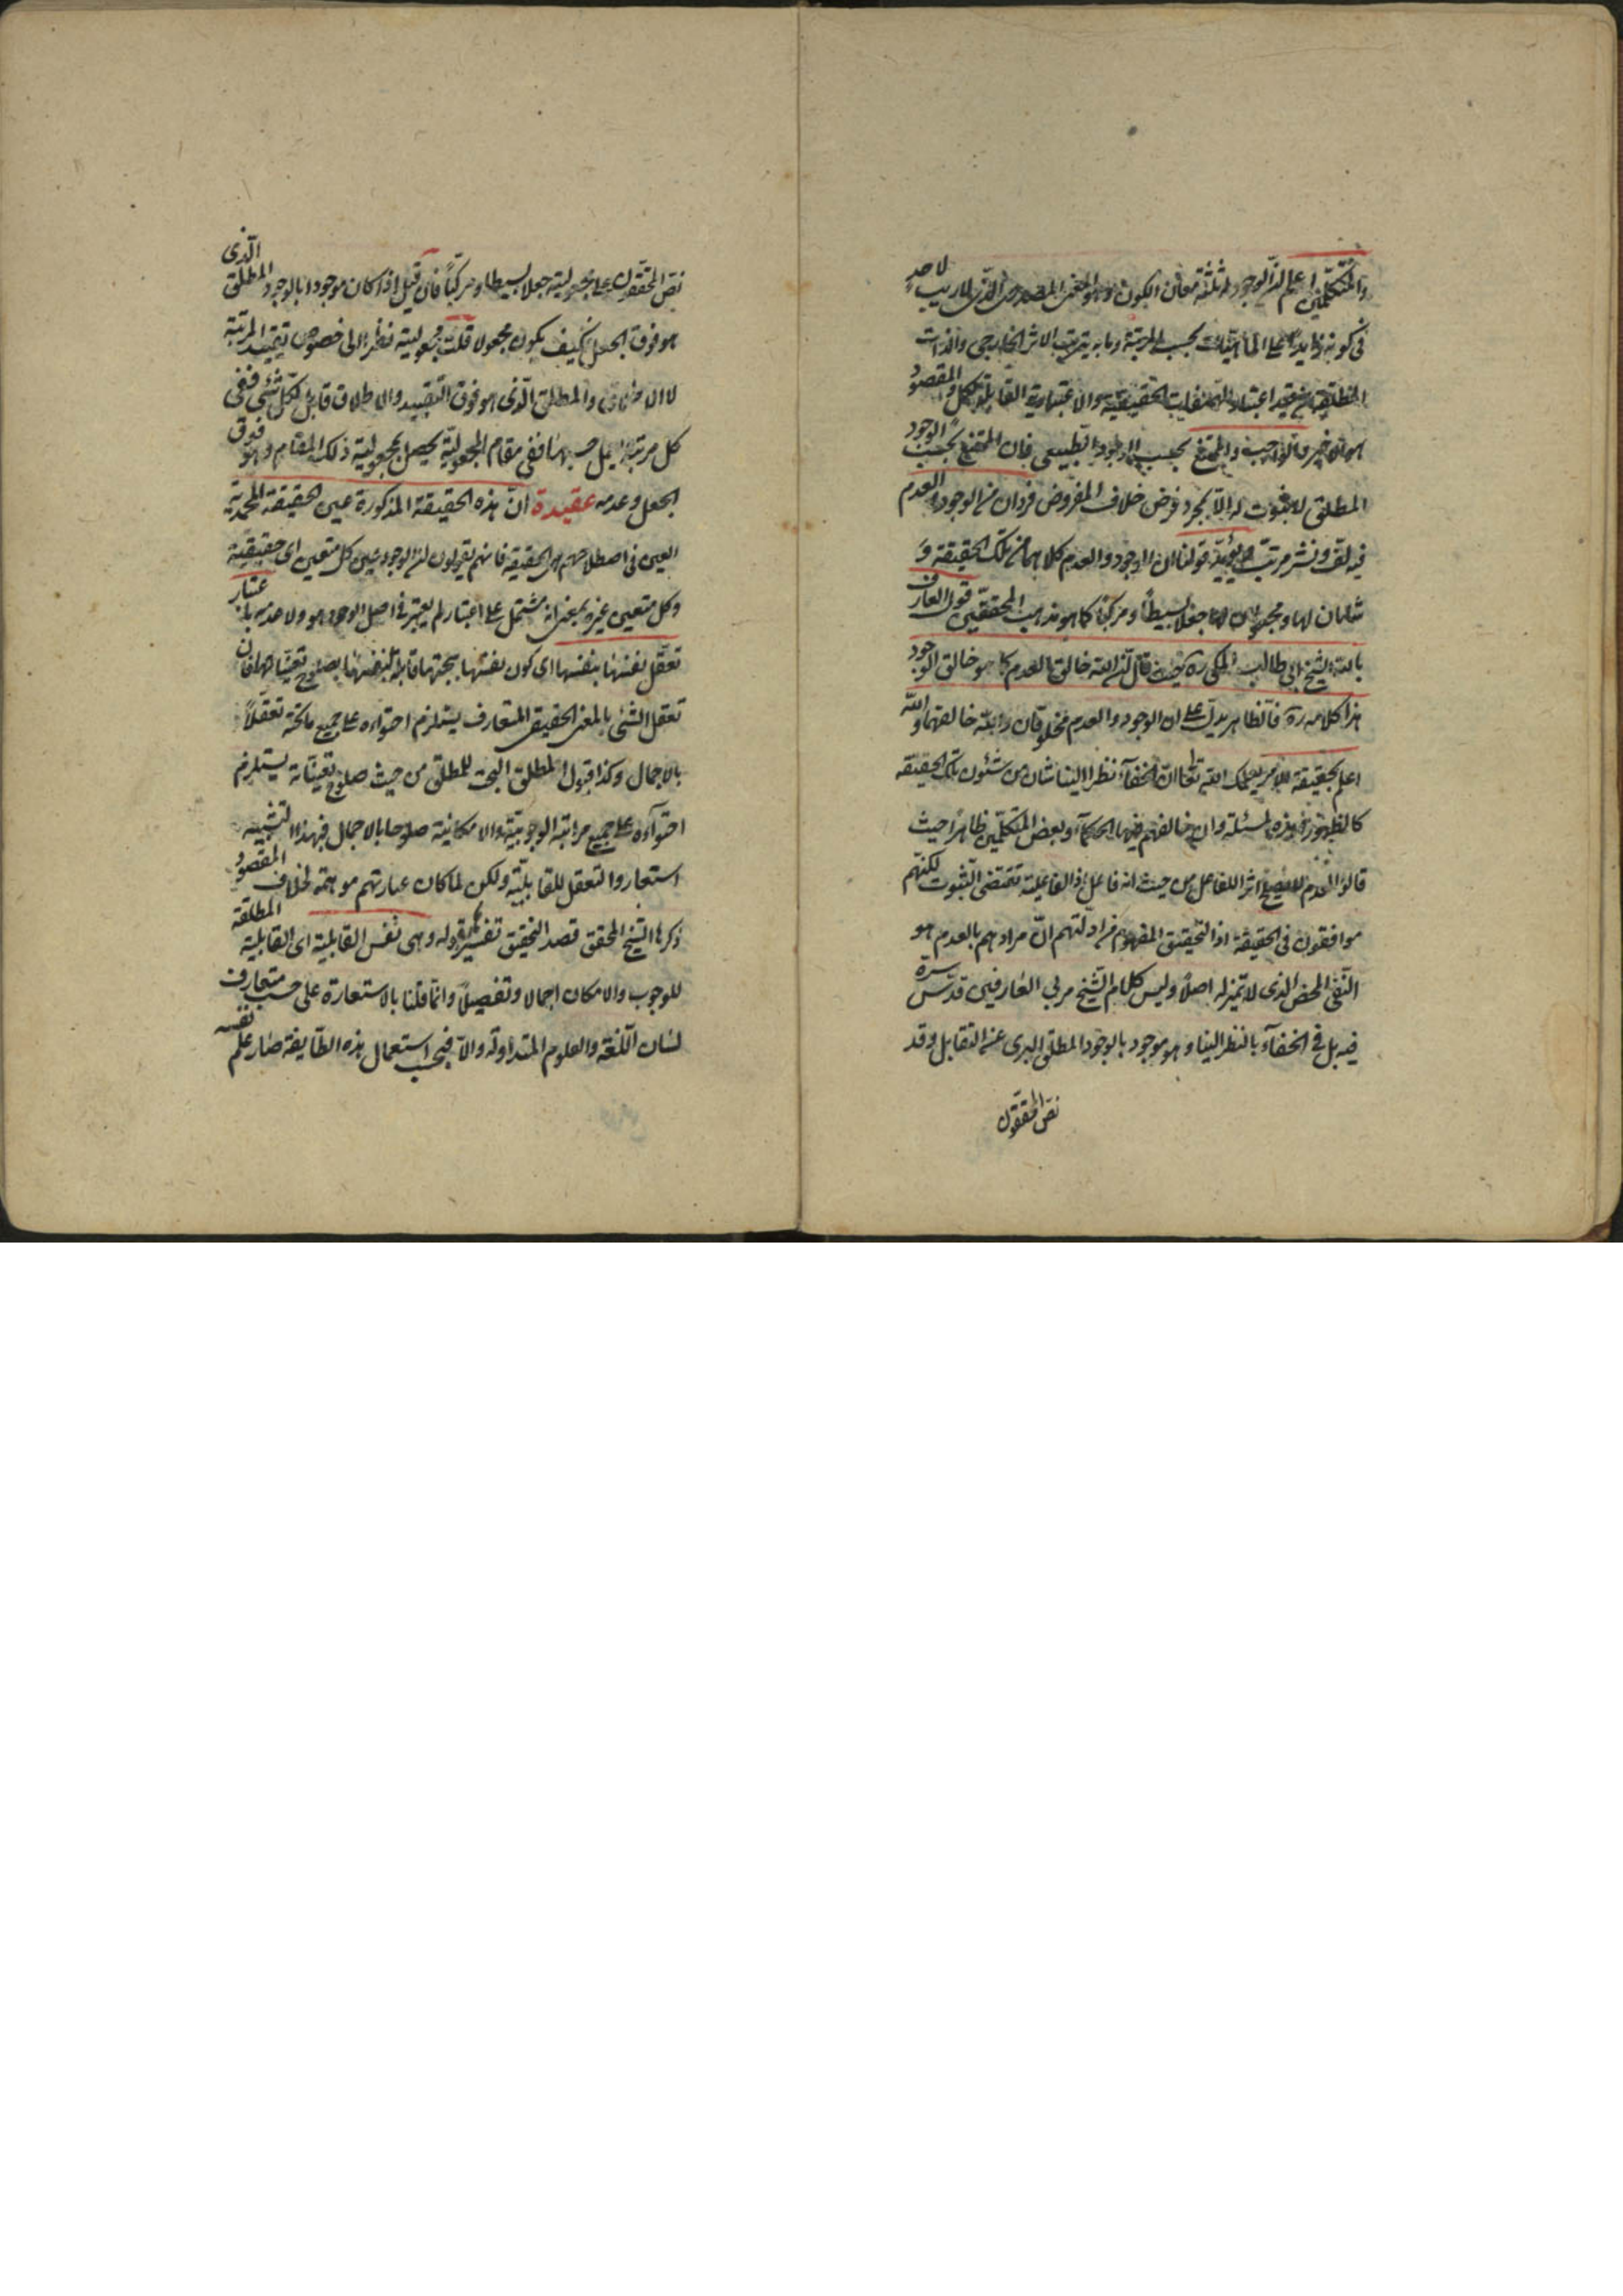 والمتكلمين اعلم ان الوجود له ثلثة معان الكون وهو المعنى المصدرى الذى لا ريب لاحد
فى كونه زايدا على الماهيات بحسب المرتبة وما به يترتب الاثر الخارجى والذات
المطلقة عن قيد اعتبار التعقلات الحقيقية والاعتبارية القابلة لكل والمقصود
هو الاخير والواجب والممتنع بحسب الوجود الطبيعى فان الممتنع بحسب الوجود
المطلق لا ثبوت له الا بمجرد فرض خلاف المفروض فردان من الوجود والعدم
فيه لف ونشر مرتب ويؤيد قولنا ان الوجود والعدم كلاهما من تلك الحقيقة و
شانان لها ومجعولان لها جعلا بسيطا ومركبا كما هو مذهب المحققين قول العارف
بالله الشيخ ابى طالب المكى ره حيث قال ان الله خالق العدم كما هو خالق الوجود
هذا كلامه ره فالظاهر يدل على ان الوجود والعدم مخلوقان والله خالقهما والله
اعلم بحقيقة الامر يعلمك الله تعالى ان الخفاء نظرا الينا شان من شئون تلك الحقيقة
كالظهور فى هذه المسئلة وان خالفهم فيها الحكماء وبعض المتكلمين ظاهرا حيث
قالوا العدم لا يصح اثرا للفاعل من حيث انه فاعل اذ الفاعلية تقتضى الثبوت لكنهم
موافقون فى الحقيقة اذ التحقيق المفهوم من ادلتهم ان مرادهم بالعدم هو
النفى المحض الذى لا تميز له اصلا وليس كلام الشيخ مربى العارفين قدس سره
فيه بل فى الخفاء بالنظر الينا وهو موجود بالوجود المطلق البرى عن التقابل وقد
نص المحققون
نص المحققون على مجعوليته جعلا بسيطا ومركبا فان قيل اذا كان موجودا بالوجود المطلق الذى
هو فوق الجعل فكيف يكون مجعولا قلت مجعوليته نظرا الى خصوص تقييد المرتبة
لا الاطلاق والمطلق الذى هو فوق التقييد والاطلاق قابل لكل شئ ففى
كل مرتبة يقبل حسبها ففى مقام المجعولية يحصل بمجعولية ذلك المقام وهو فوق
الجعل وعدمه عقيدة ان هذه الحقيقة المذكورة عين الحقيقة المحمدية
العين فى اصطلاحهم هى الحقيقة فانهم يقولون ان الوجود عين كل متعين اى حقيقية
وكل متعين غيره بمعنى انه مشتمل على اعتبار لم يعتبر فى اصل الوجود هو ولا عدمه باعتبار
تعقل نفسها بنفسها اى كون نفسها بجنتها قابلة لنفسها بصلوح تعيناتها فان
تعقل الشئ بالمعنى الحقيقى المتعارف يستلزم احتواءه على جميع ما تحته تعقلا
بالاجمال وكذا قبول المطلق البحت للمطلق من حيث صلوح تعيناته يستلزم
احتواءه على جميع مراتبه الوجوبية والامكانية صلوحا بالاجمال فبهذا التشبيه
استعاروا التعقل للقابلية ولكن لما كان عبارتهم موهمة لخلاف المقصود
ذكرها الشيخ المحقق قصد التحقيق تفسيرها بقوله وهى نفس القابلية اى القابلية المطلقة
للوجوب والامكان اجمالا وتفصيلا وانما قلنا بالاستعارة على حسب متعارف
لسان اللغة والعلوم المتداولة والا فبحسب استعمال هذه الطايفة صار علم نفسه